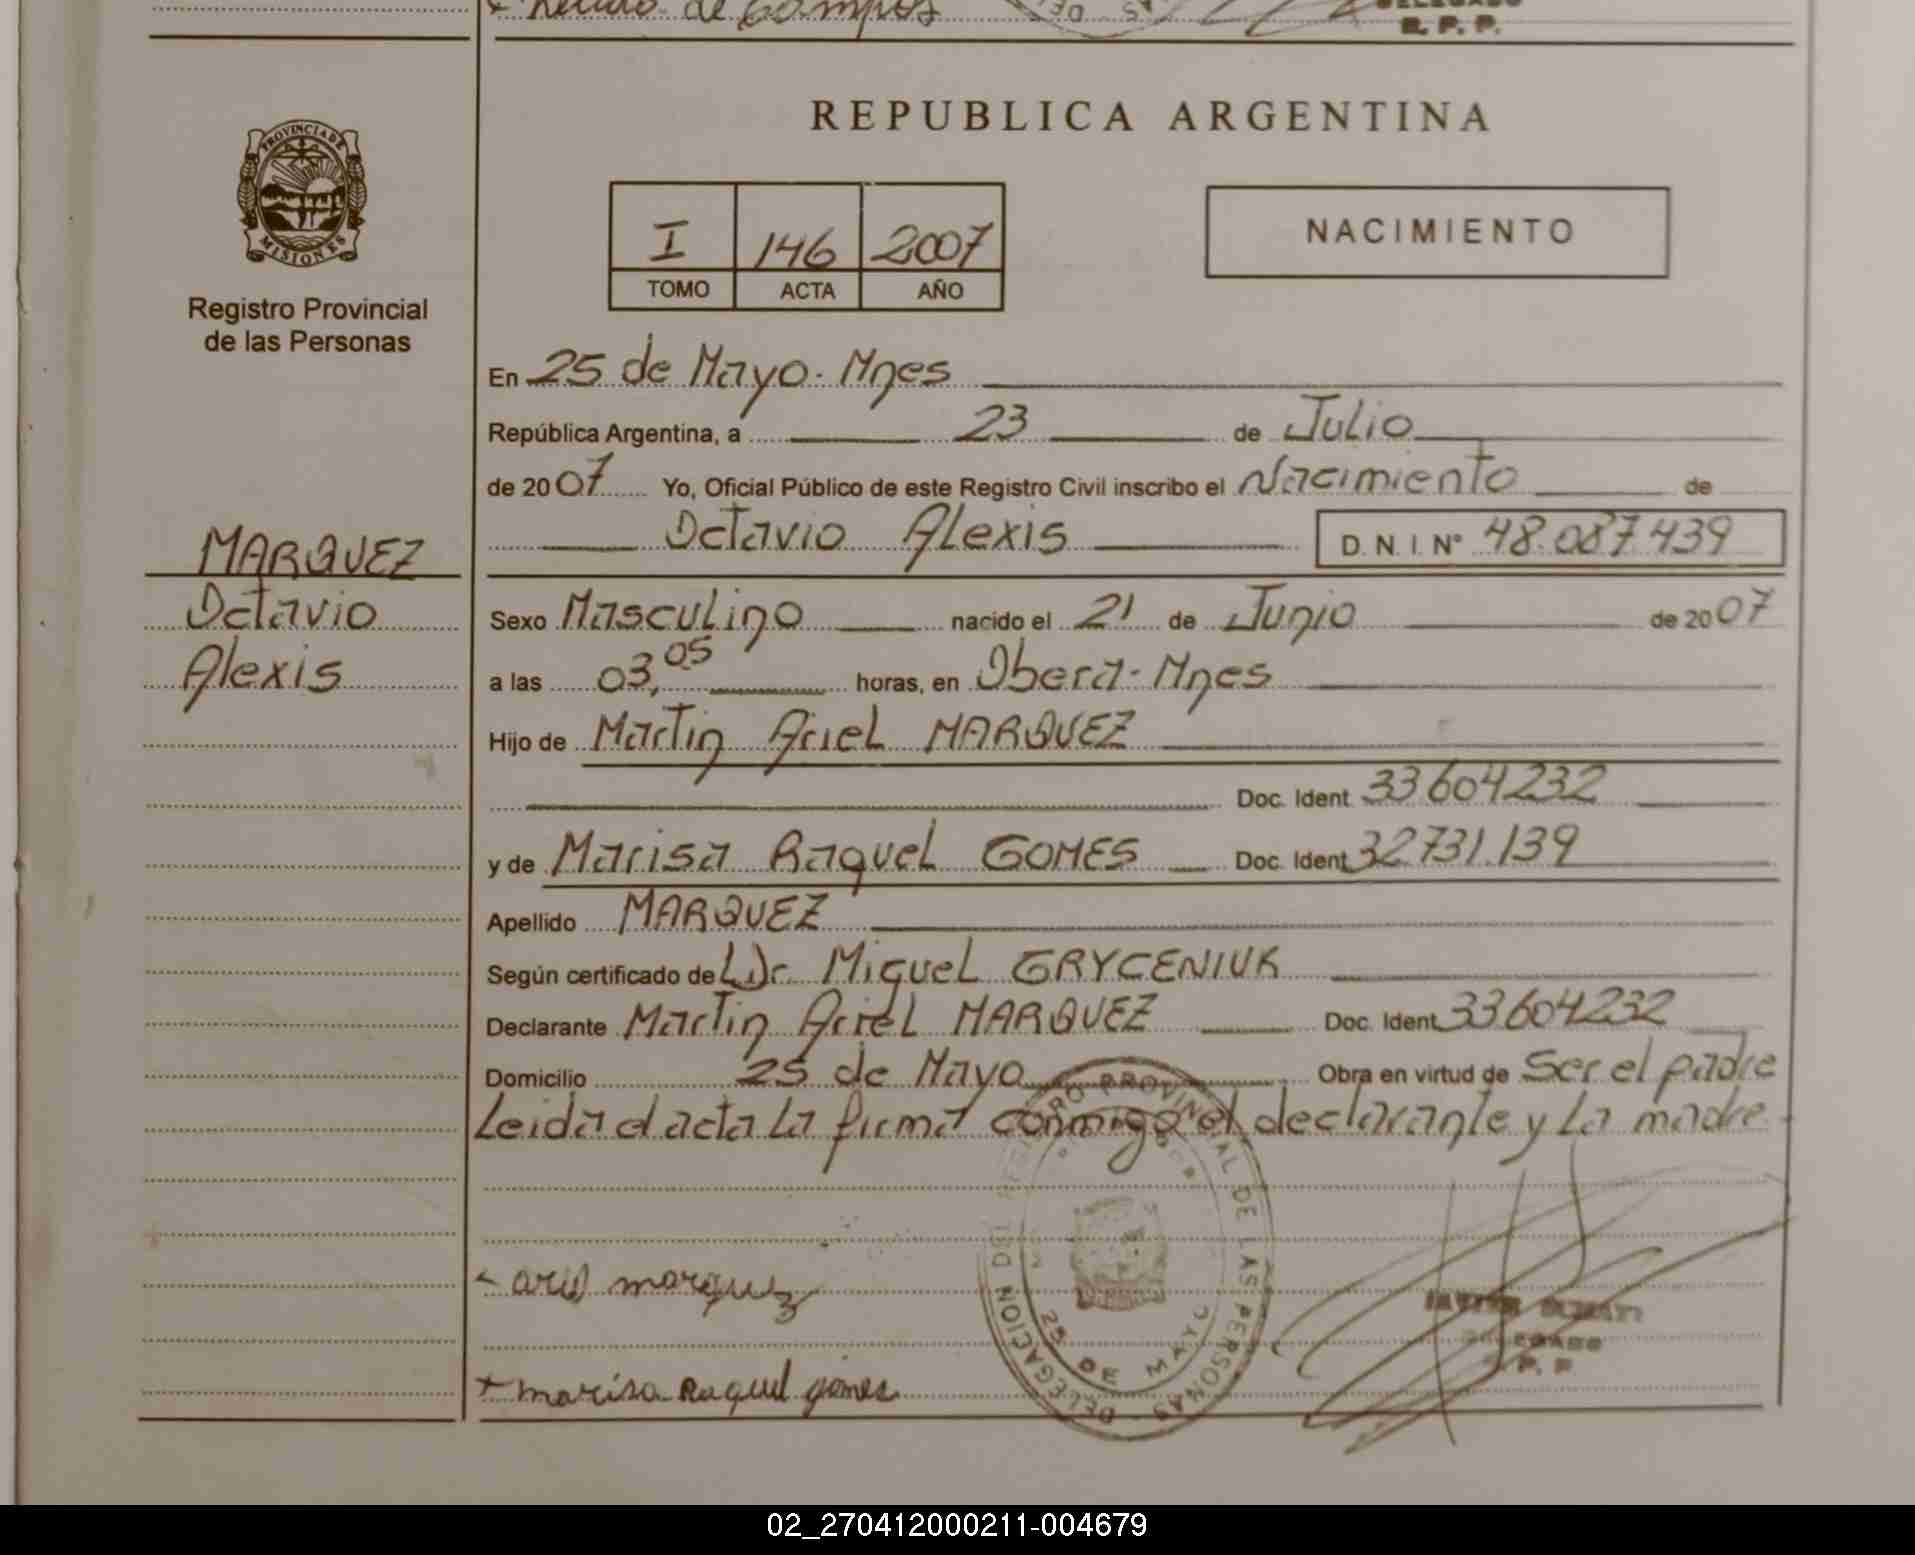 Recibo de Campos
R. P. P.
REPUBLICA ARGENTINA
PROVINCIA DE
MISIONES
Registro Provincial
de las Personas
I 146 2007
TOMO ACTA AÑO
NACIMIENTO
En 25 de Mayo. Mnes
República Argentina, a 23 de Julio
de 2007 Yo, Oficial Público de este Registro Civil inscribo el Nacimiento de
Octavio Alexis D.N.I. Nº 48.087.439
MARQUEZ
Octavio
Alexis
Sexo Masculino nacido el 21 de Junio de 2007
a las 03,05 horas, en Obera - Mnes
Hijo de Martin Ariel MARQUEZ
Doc. Ident 33604232
y de Marisa Raquel GOMES Doc. Ident 32731.139
Apellido MARQUEZ
Según certificado del Dr. Miguel GRYCENIUK
Declarante Martin Ariel MARQUEZ Doc. Ident 33604232
Domicilio 25 de Mayo Obra en virtud de Ser el padre
Leida el acta La firma conmigo el declarante y La madre.
DELEGACION DEL REGISTRO PROVINCIAL DE LAS PERSONAS
25 DE MAYO
marquez
DELEGADO
marisa Raquel gomes
02_270412000211-004679